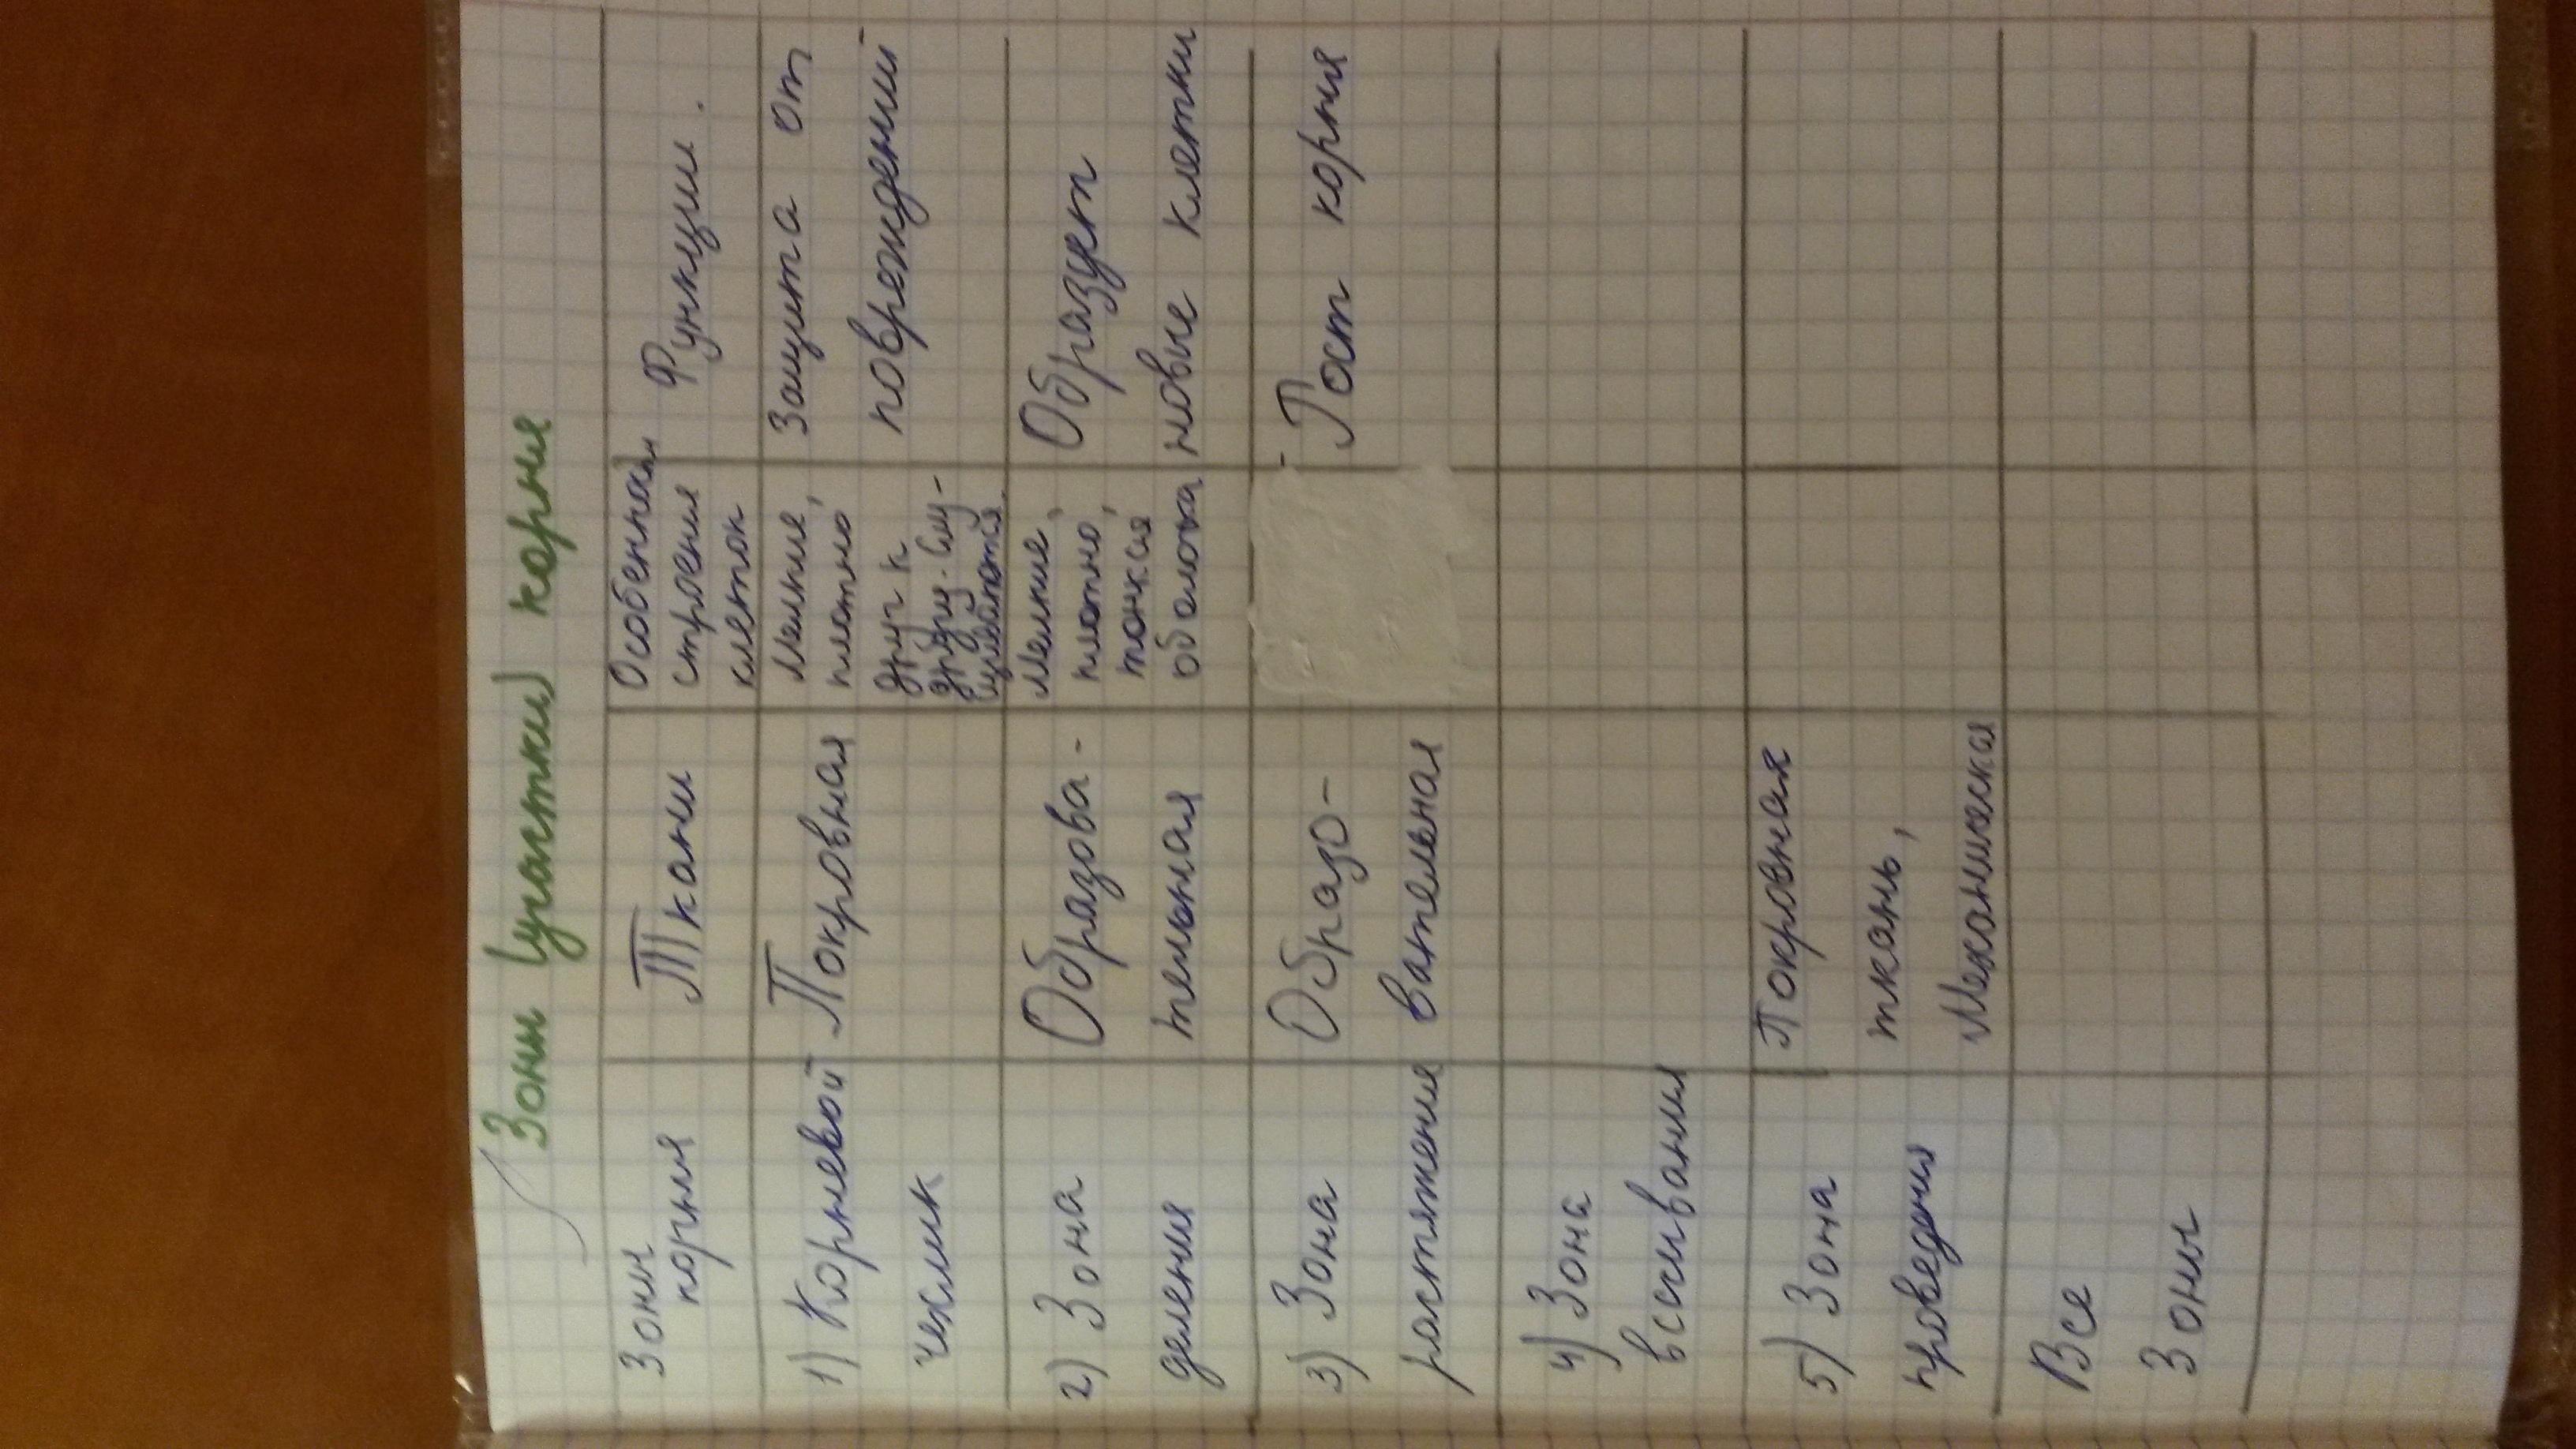 Зоны (участки) корня
Зоны
корня
Ткани
Особенности
строения
клеток
Функции.
1) Корневой
чехлик
Покровная
Мелкие,
плотно
друг к
другу. Слу-
щиваются.
Защита от
повреждений
2) Зона
деления
Образова-
тельная
Мелкие,
плотно,
тонкая
оболочка
Образует
новые клетки
3) Зона
растяжения
Образо-
вательная
Рост корня
4) Зона
всасывания
5) Зона
проведения
Покровная
ткань,
Механическая
Все
Зоны